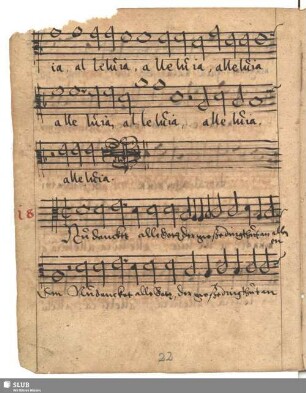 ia, al leluia, alleluia, alleluia
alle luia, alleluia, alleluia,
alleluia.
18
Nu dancket alle Gott, der grosse ding thut an allen
En Nu dancket alle Gott, der grosse ding thut an
22
SLUB
Wir führen Wissen.